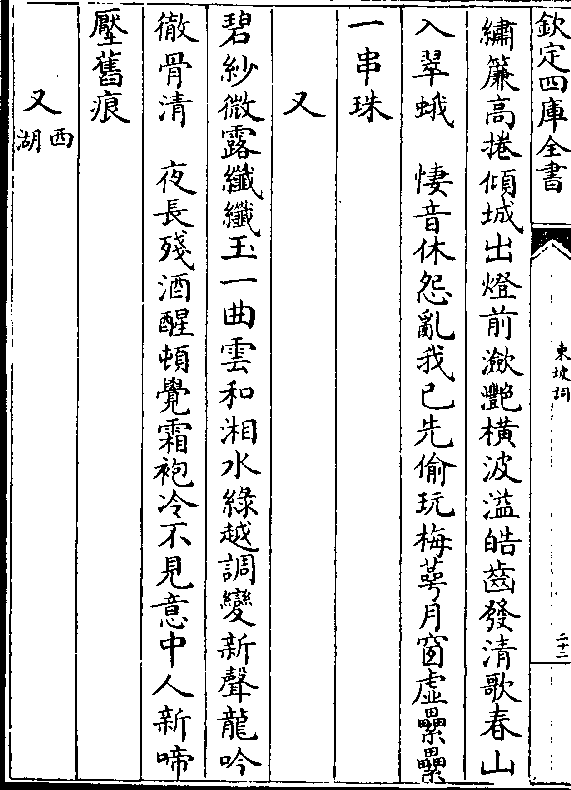 欽定四庫全書
東坡詞
二十二
繡簾高捲傾城出燈前瀲灩橫波溢皓齒發清歌春山
入翠蛾　悽音休怨亂我已先偷玩梅萼月窗虛纍纍
一串珠
又
碧紗微露纖纖玉一曲雲和湘水綠越調變新聲龍吟
徹骨清　夜長殘酒醒頓覺霜袍冷不見意中人新啼
壓舊痕
又西湖